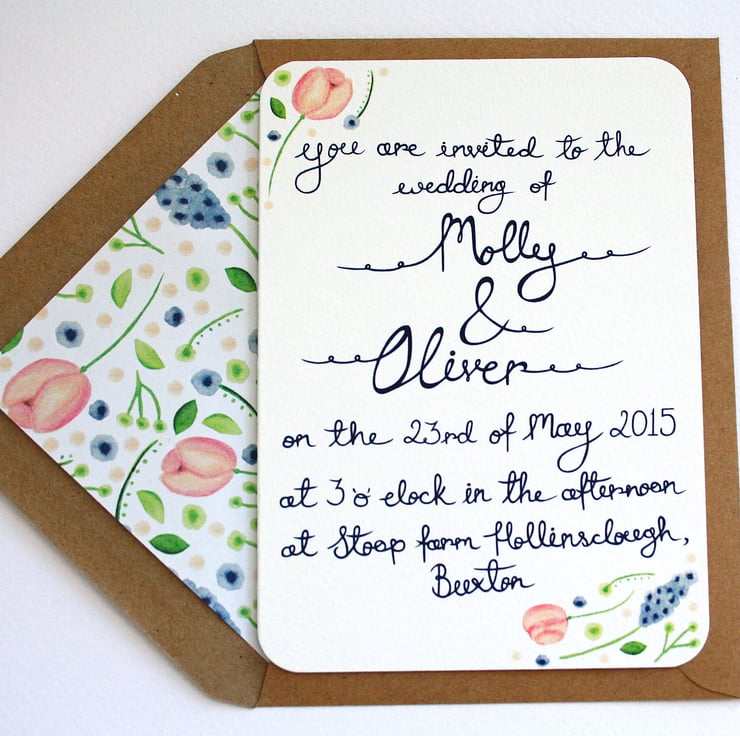 you are invited to the
wedding of
Molly
&
Oliver
on the 23rd of May 2015
at 3 o' clock in the afternoon
at Stoop farm Hollinsclough,
Buxton